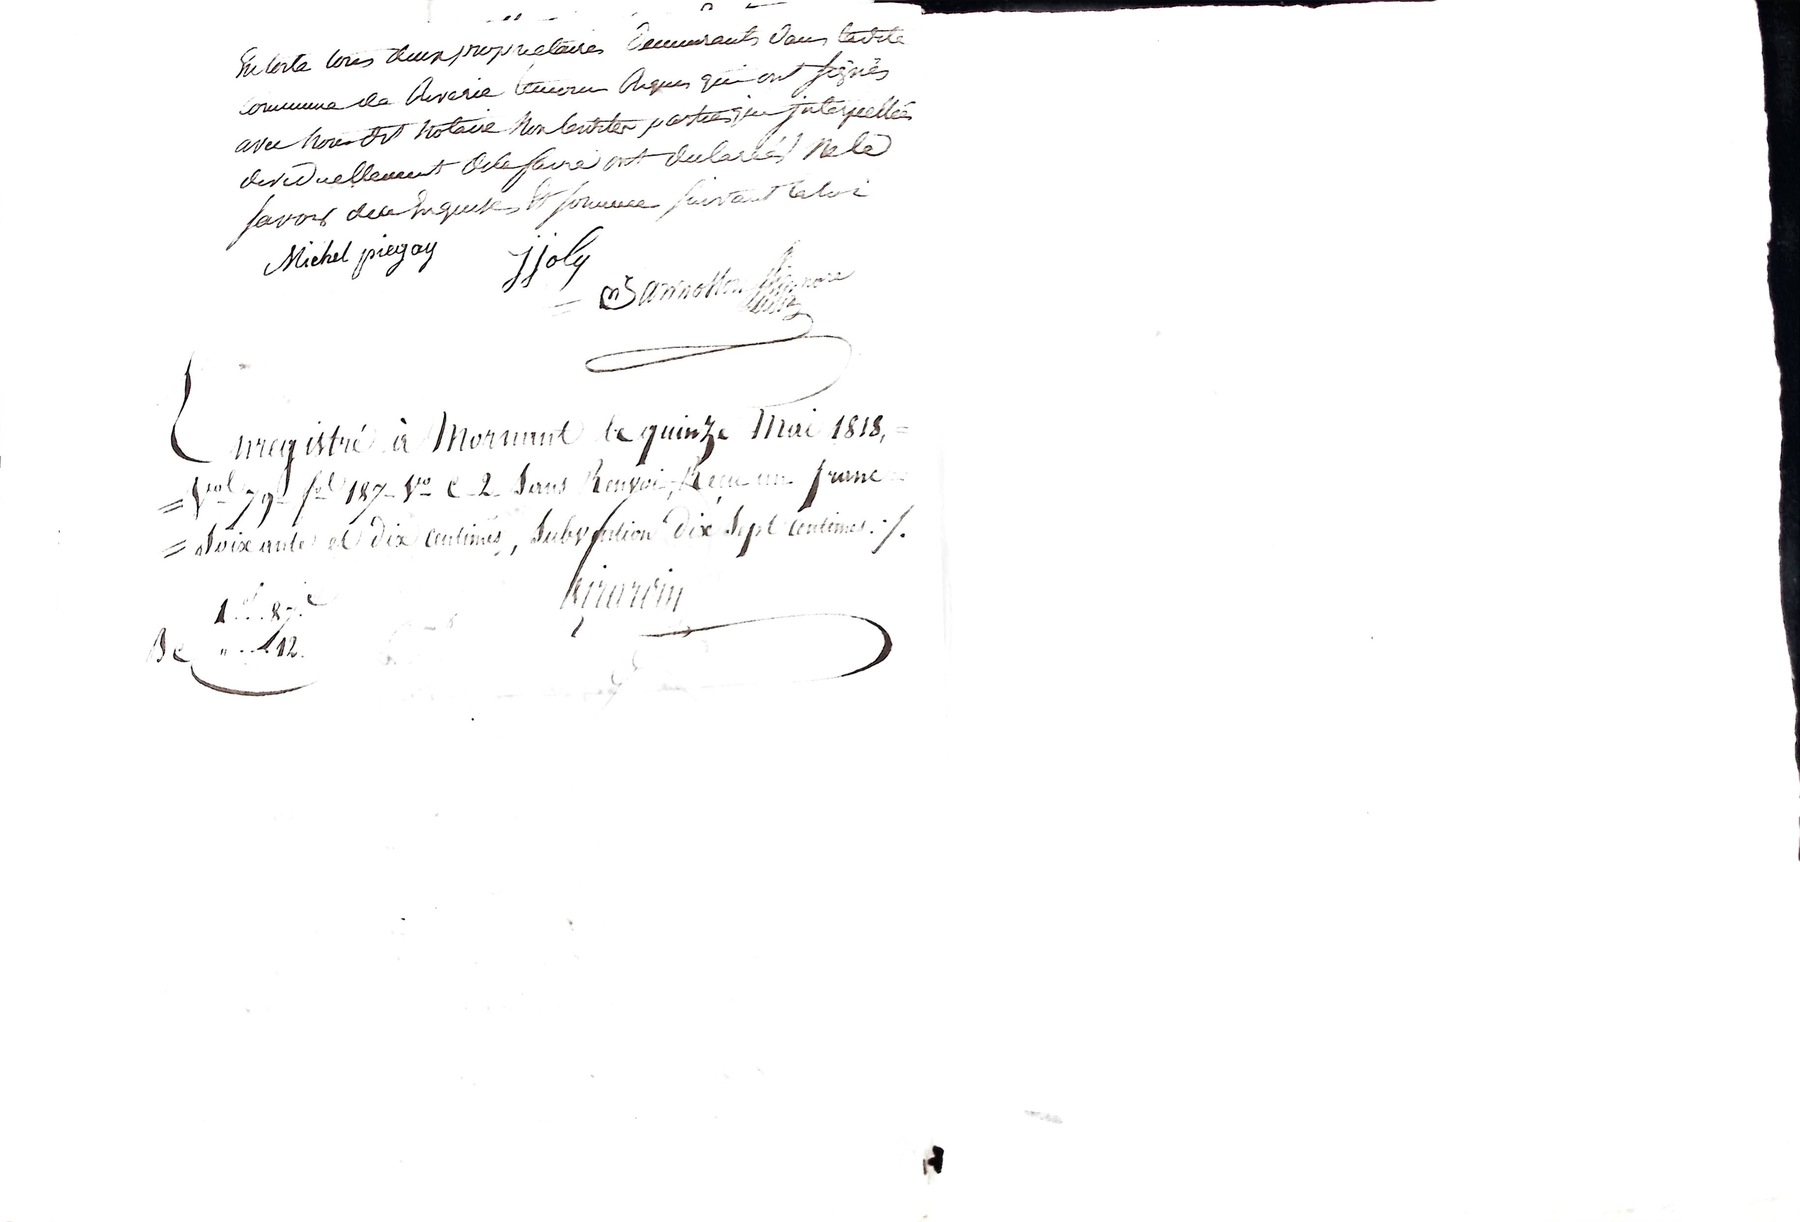 tous deux propriétaires demeurants dans ladite
commune de Riverie temoins requis qui ont signés
avec nous dit notaire non lesdites parties qui interpellées
de le faire ont declarés ne le
savoir de ce enquises Et sommee suivant la loi
Michel piegay jjoly
Enregistré à Mornant le quinze Mai 1818,=
= Vol 79 fol 187 Vo C 2 Sans Renvoi, Reçu un franc
= Soixante et dix centimes, Subvention dix Sept centimes ./.
Girardin
1 f. 87 c
12.